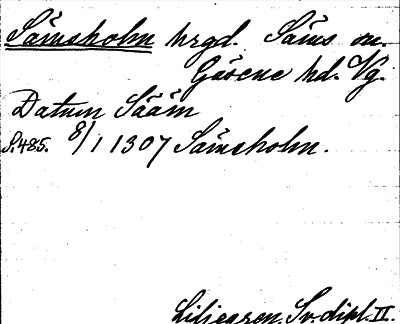 Sämsholm hrgd. Säms sn.
Gäsene hd. Vg.
Datum Sääm
S. 485. 8/1 1307 Sämsholm.
Liljegren. Sv. dipl. II.